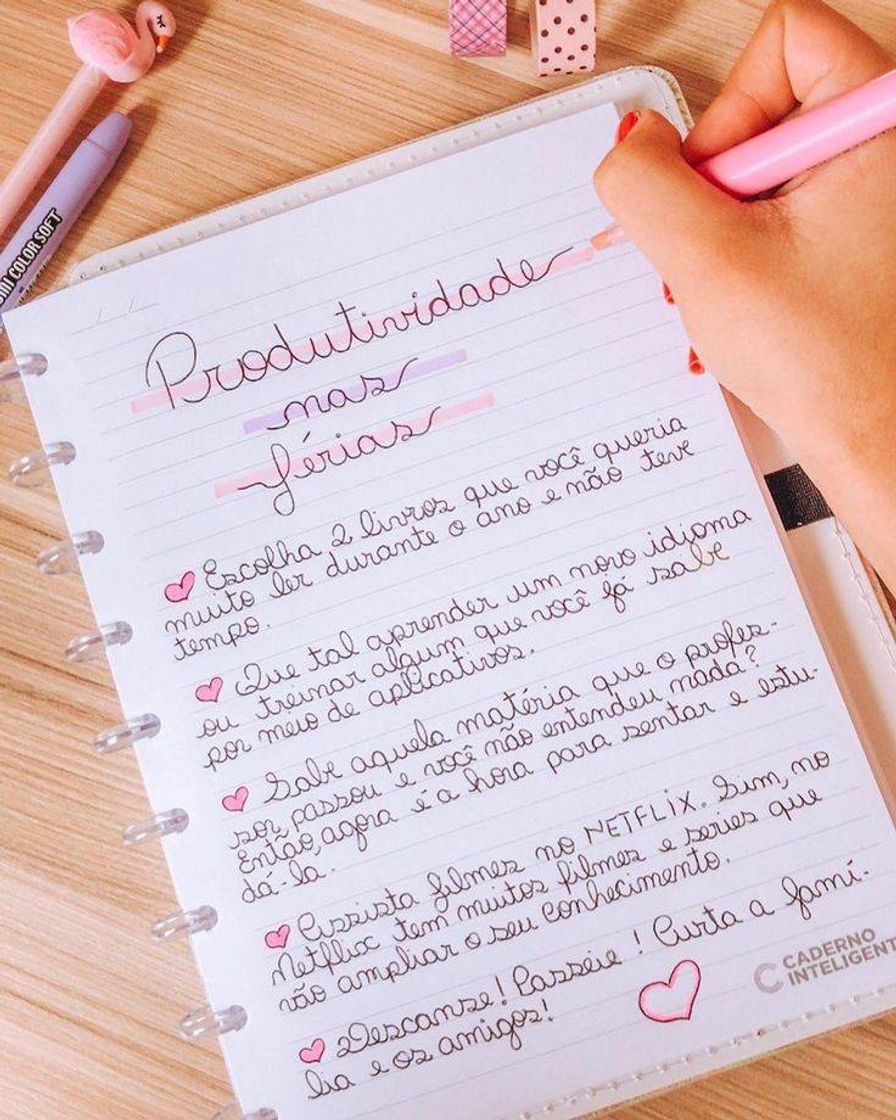 MI COLOR SOFT
Produtividade
nas
férias
Escolha 2 livros que você queria
muito ler durante o ano e não teve
tempo.
Que tal aprender um novo idioma
ou treinar algum que você já sabe
por meio de aplicativos.
Sabe aquela matéria que o profes-
sor passou e você não entendeu nada?
Então, agora é a hora para sentar e estu-
dá-la.
Assista filmes no NETFLIX. Sim, no
Netflix tem muitos filmes e series que
vão ampliar o seu conhecimento.
Descanse! Passeie! Curta a famí-
lia e os amigos!
CADERNO
INTELIGENT